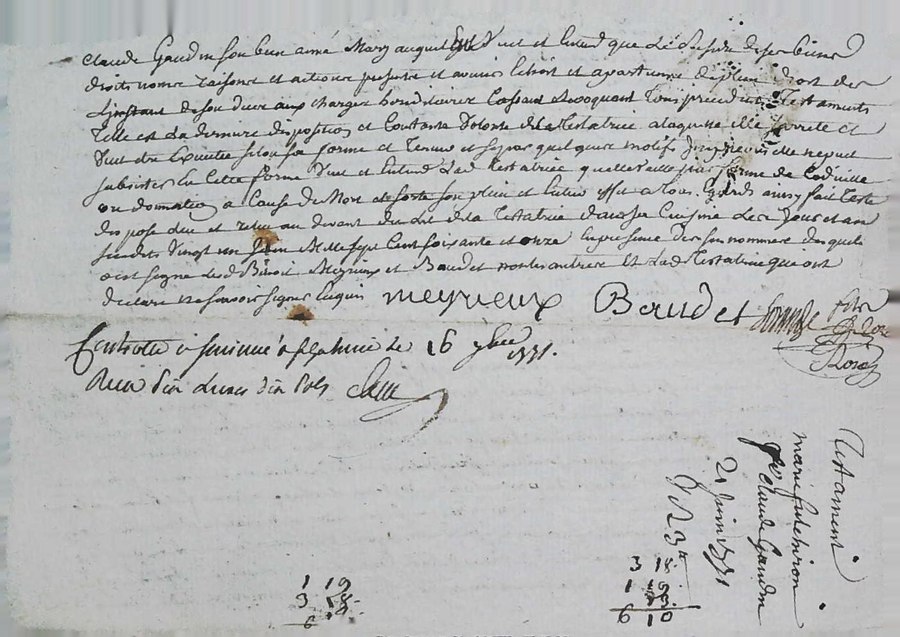 Claude Gaudin son bien aimé Mary auquel Elle veut et Entend que Le de ses biens
droits noms raisons et actions presents et avenir Echoit et apartienne de plein droit des
L'instant de son deces aux charges hereditaires Cassant Revoquant Tous precedents Testaments
Telle est La derniere disposition et Constante Volonté de la Testatrice a laquelle elle et
Veut etre Executée selon sa forme et Teneur et sy par quelques motifs elle ne peut
subsister En Cette forme Veut et Entend Lad Testatrice quelle vaille par forme de Codicille
ou donation a Cause de Mort et sorte son plein et Entier effet a tous Egards ainsy fait Teste
dispose leu et releu au devant du lit de la Testatrice dans sa Cuisine Les Jour et an
susdits Vingt un Juin Mille sept Cent soixante et onze En presence des susnommés desquels
ont signé Benoit Meyrieux et Baudet non les autres Et Lad Testatrice que ont
declare ne sçavoir signer Enquis meyrieux Baudet
Controlé le 16 1771.
Receu dix Livres dix sols
Testament
marie
Claude Gaudin
21 juin 1771
3 18
1 19
6 10
1 19
3 18
6